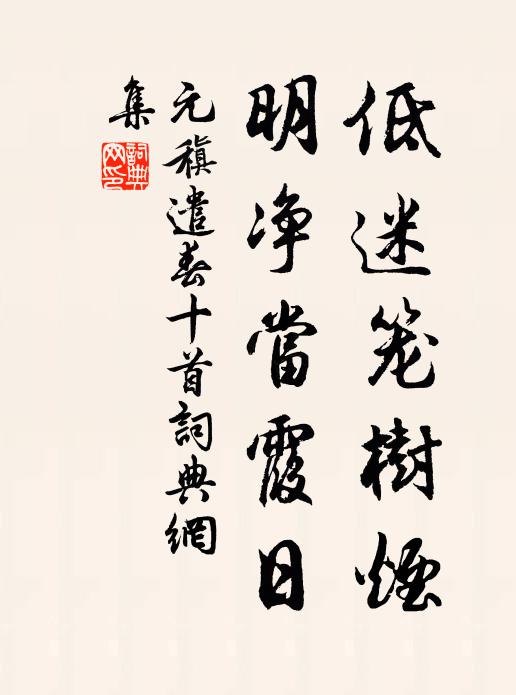 低迷笼樹煙
明净當霞日
元稹遣春十首詞典網
集
詞典網印